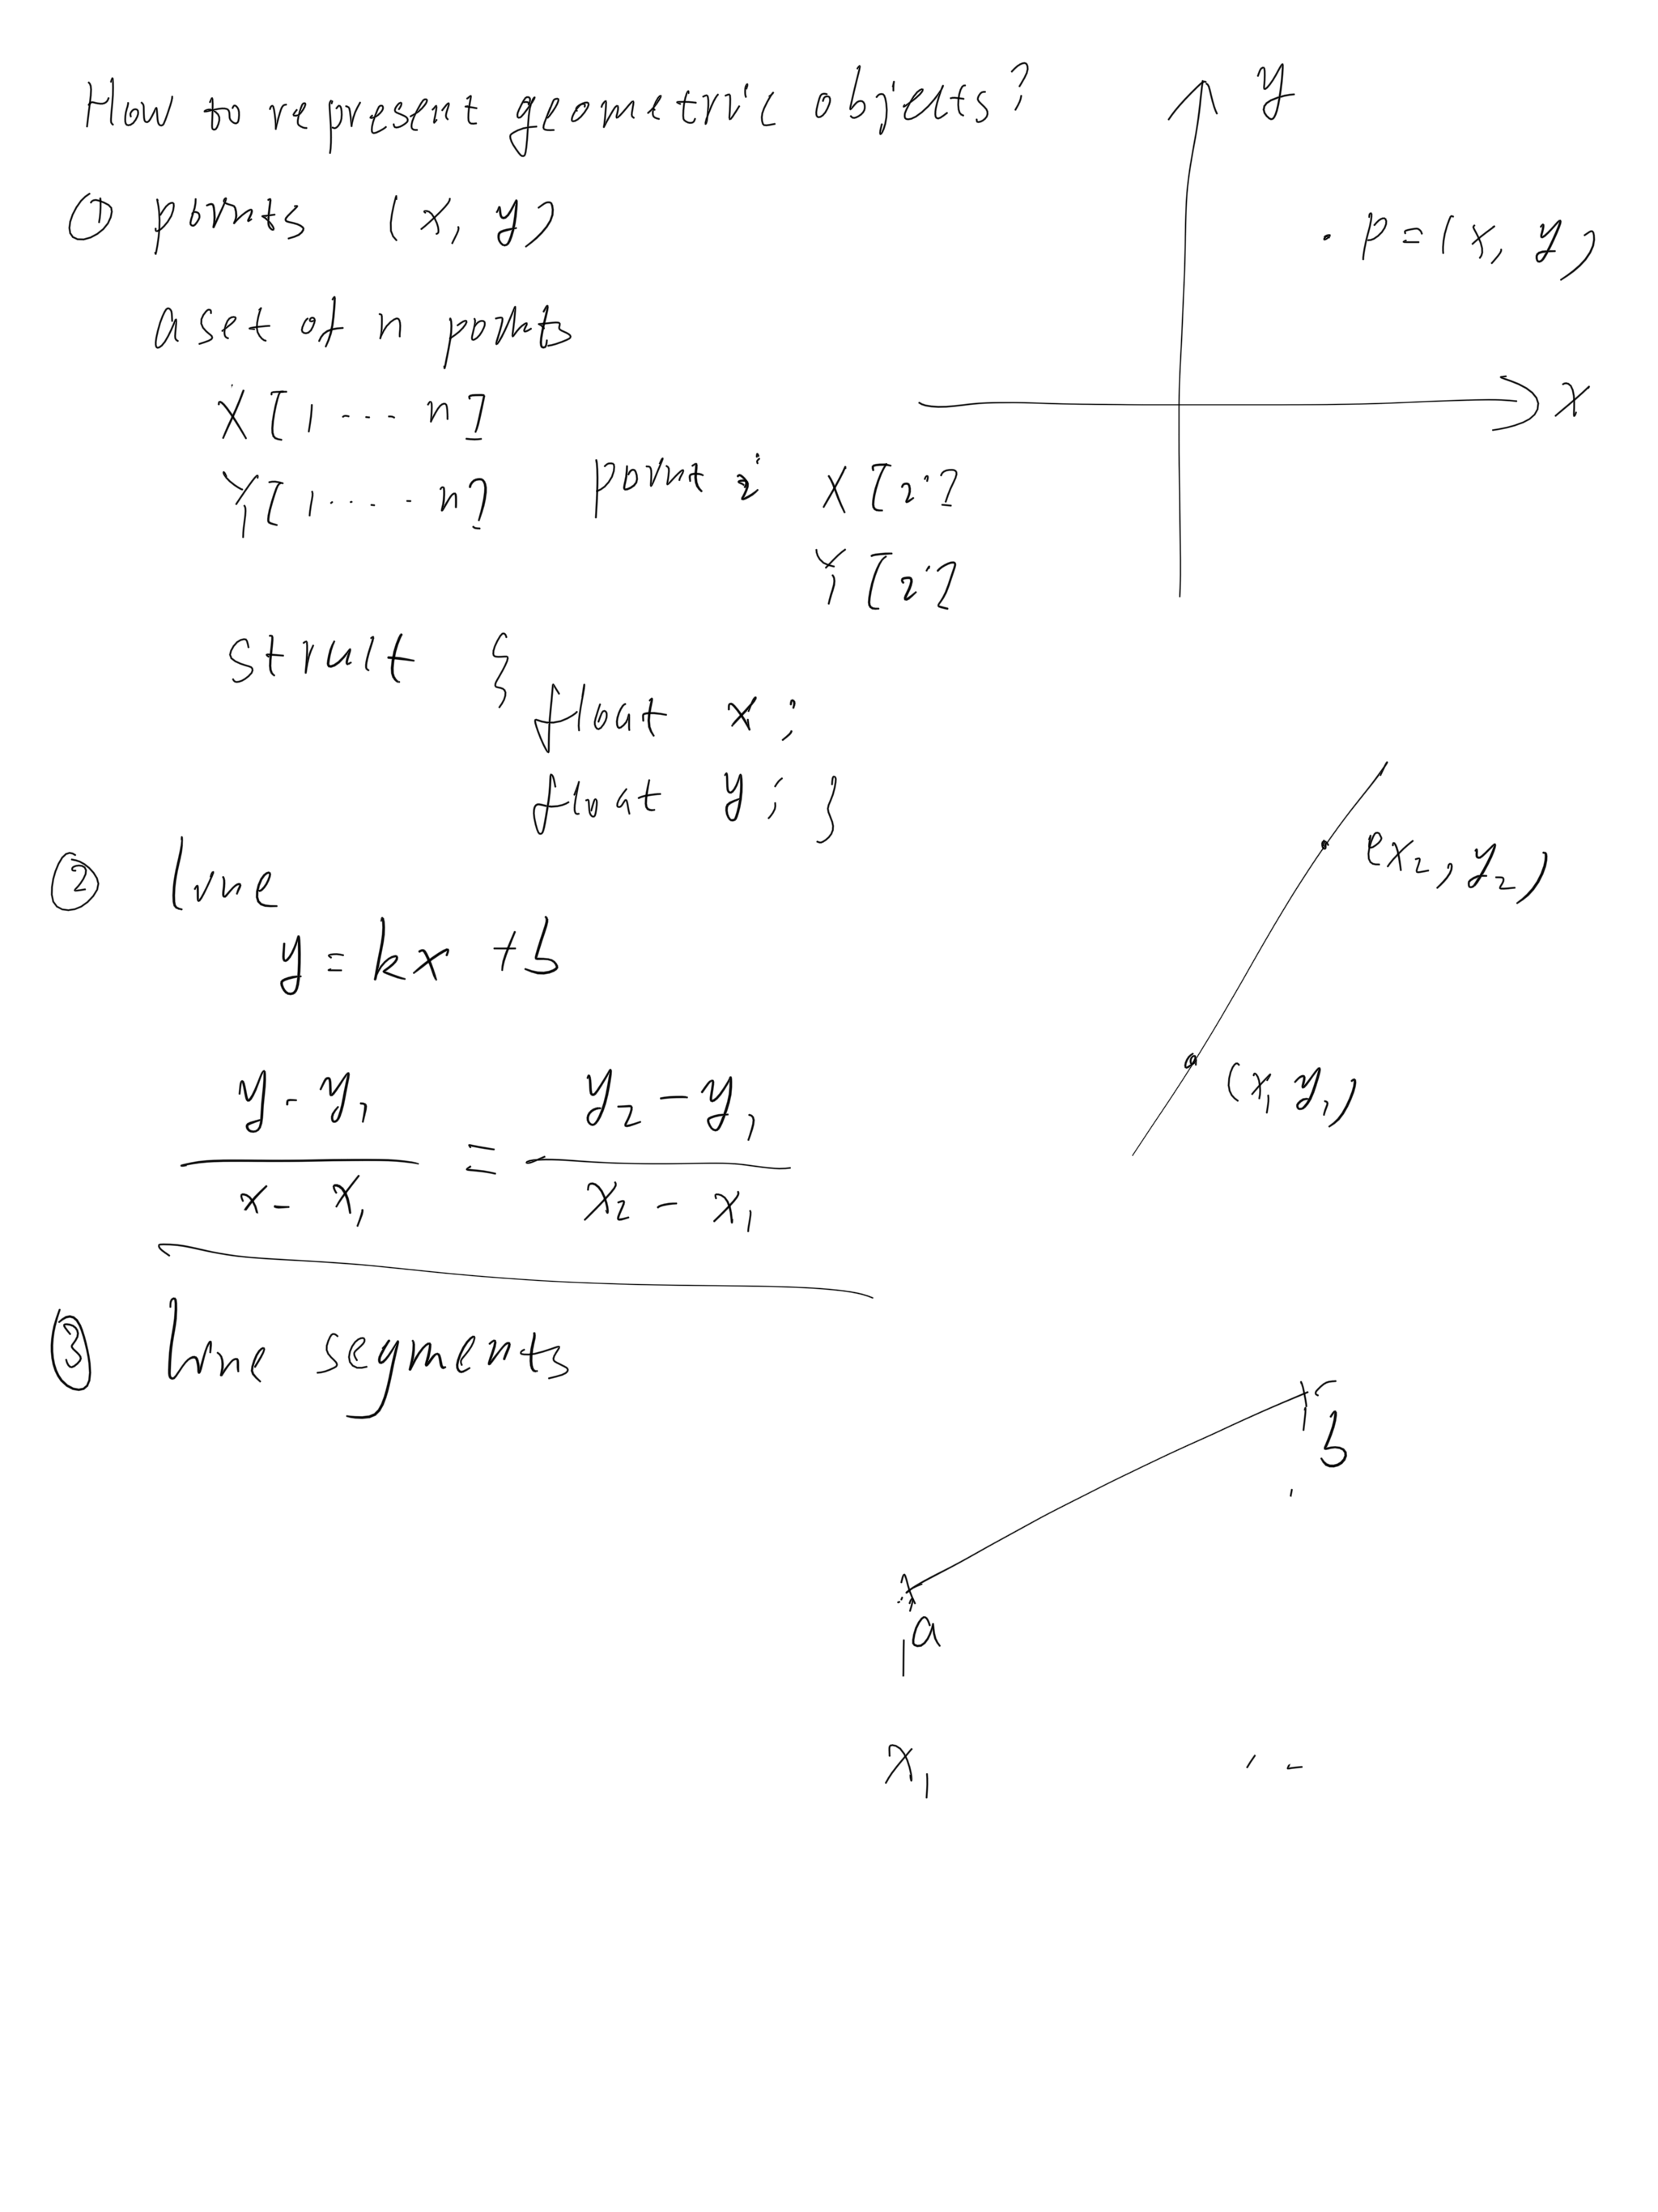 How to represent geometric objects?
y
① points (x, y)
· P = (x, y)
a set of n points
X[1 --- n]
x
Y[1 ---- n] point i X[i]
Y[i]
struct {
float x;
float y; }
② line
(x₂, y₂)
y = kx + b
(x₁ y₁)
y - y₁ / x - x₁ = y₂ - y₁ / x₂ - x₁
③ line segments
b
a
x₁